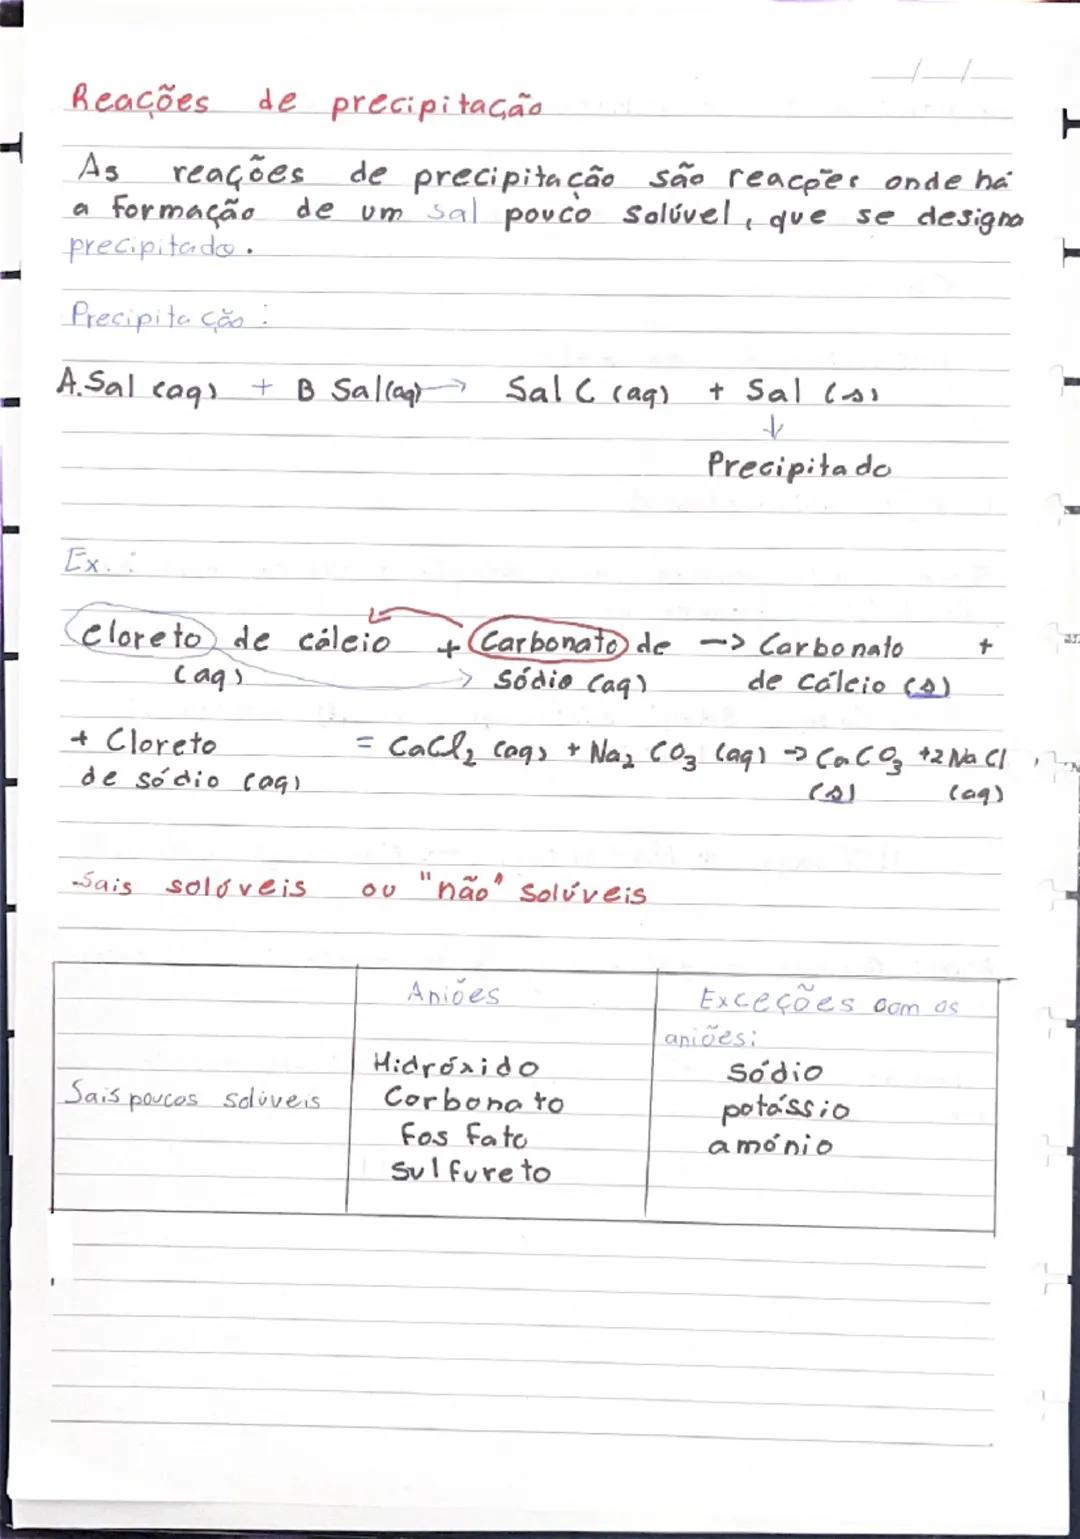 Reações de precipitação
As reações de precipitação são reações onde há
a formação de um sal pouco solúvel, que se designa
precipitado.
Precipitação:
A. Sal (aq) + B Sal (aq) → Sal C (aq) + Sal (s)
↓
Precipitado
Ex.:
Cloreto de cálcio + Carbonato de -> Carbonato +
(aq) Sódio (aq) de cálcio (s)
+ Cloreto = CaCl₂ (aq) + Na₂ CO₃ (aq) → CaCO₃ + 2 NaCl
de sódio (aq) (s) (aq)
-Sais solúveis ou "não" solúveis
Aniões Exceções com os
aniões:
Hidróxido Sódio
Sais poucos solúveis Carbonato potássio
Fosfato amónio
Sulfureto